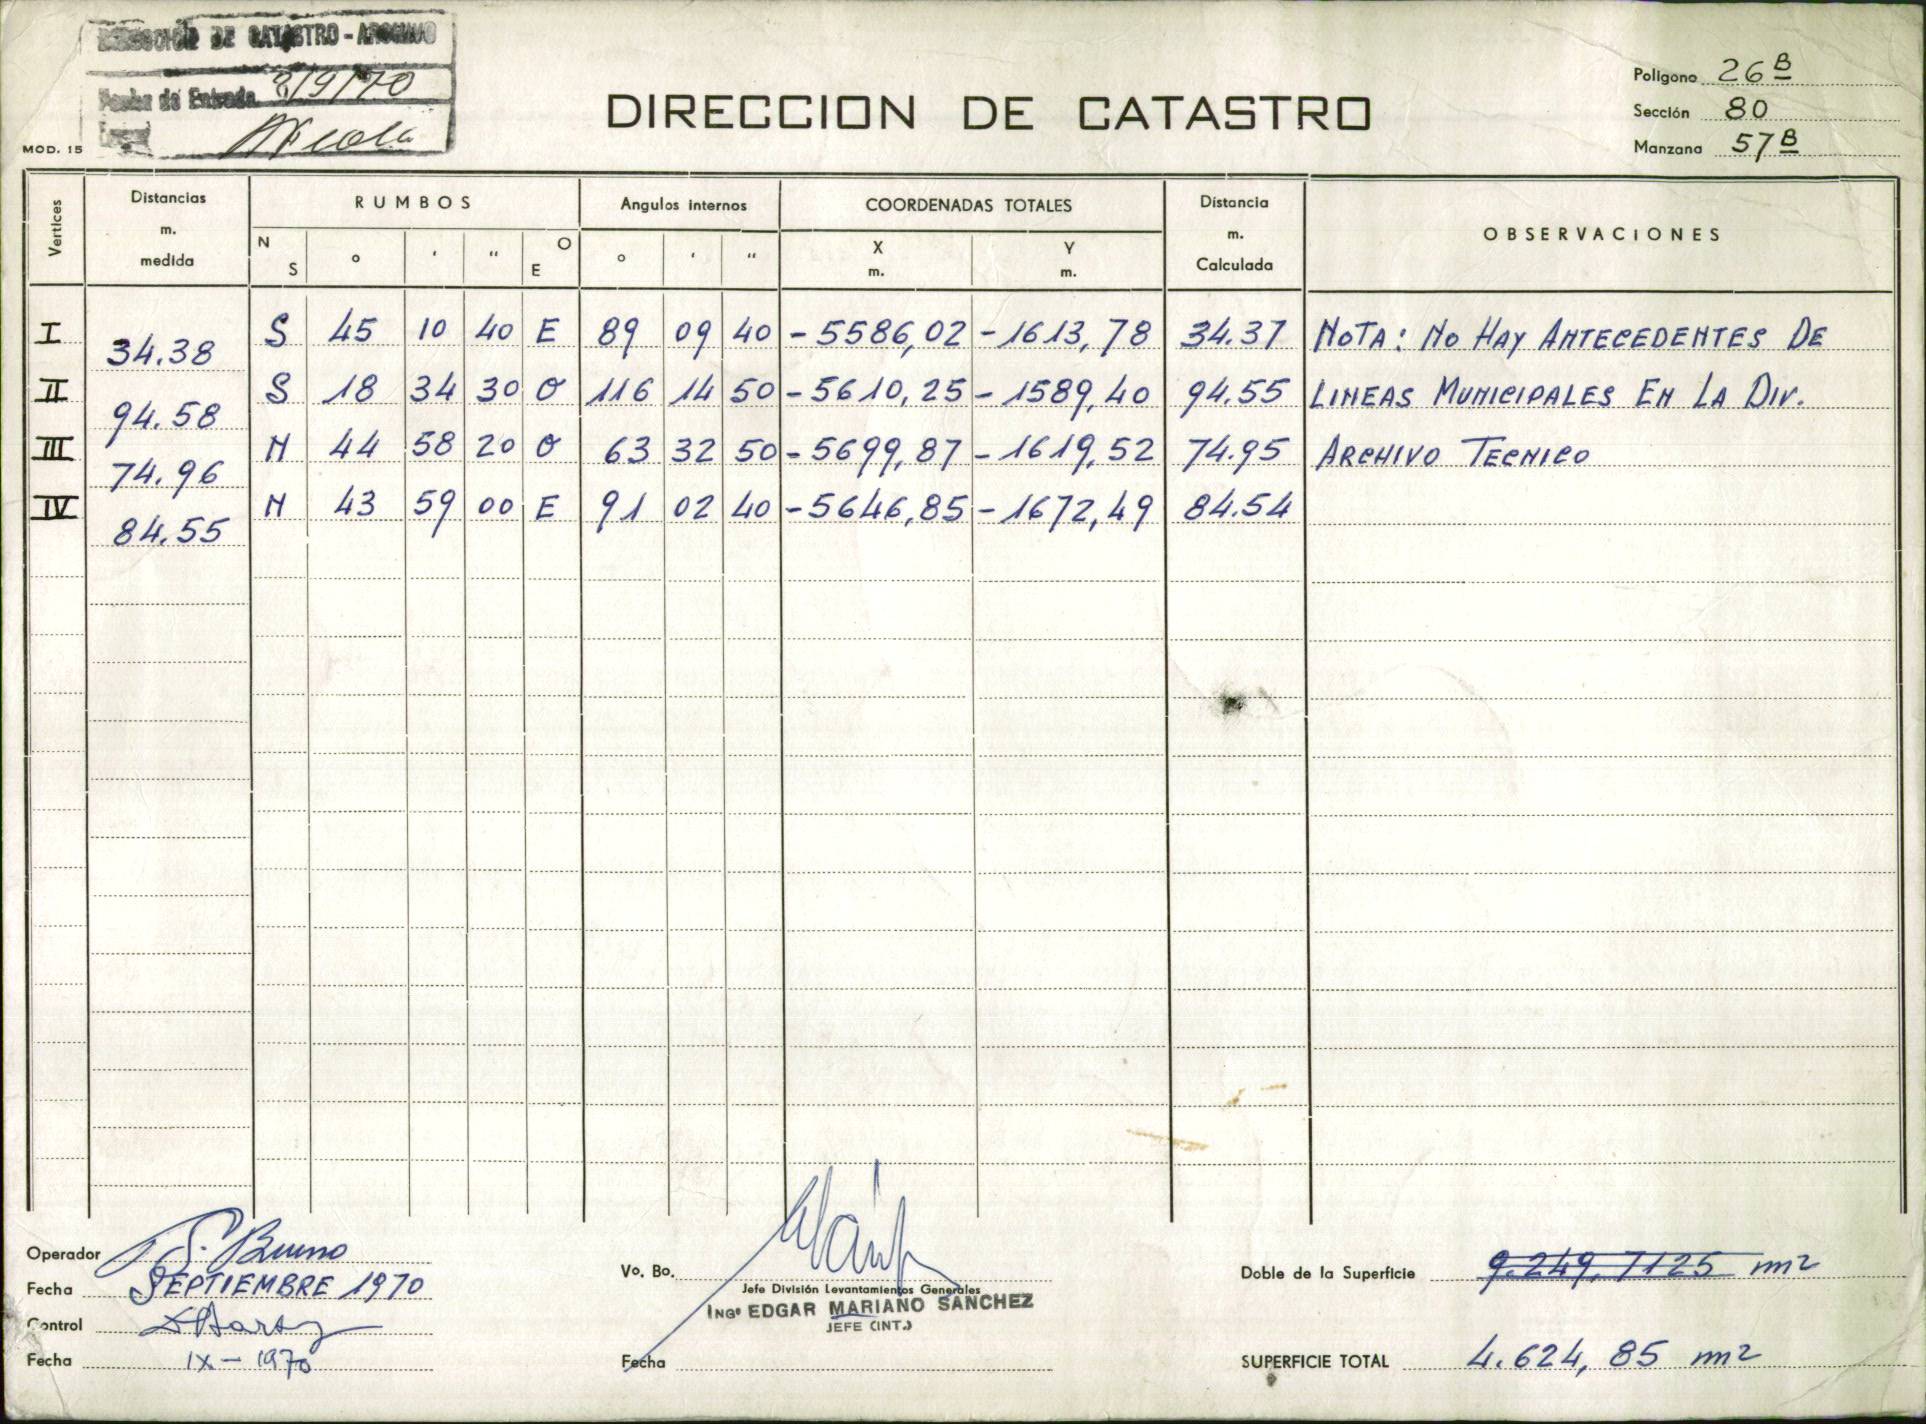 DIRECCION DE CATASTRO - ARCHIVO
Fecha de Entrada 2/9/70
DIRECCION DE CATASTRO
MOD. 15
Poligono 26 B
Sección 80
Manzana 57 B
Vertices Distancias m. medida RUMBOS Angulos internos COORDENADAS TOTALES Distancia m. Calculada OBSERVACIONES
N S ° ' " O E ° ' " X m. Y m.
I 34.38 S 45 10 40 E 89 09 40 -5586,02 -1613,78 34.37 NOTA: NO HAY ANTECEDENTES DE
II 94.58 S 18 34 30 O 116 14 50 -5610,25 -1589,40 94.55 LINEAS MUNICIPALES EN LA DIV.
III 74.96 N 44 58 20 O 63 32 50 -5699,87 -1619,52 74.95 ARCHIVO TECNICO
IV 84.55 N 43 59 00 E 91 02 40 -5646,85 -1672,49 84.54
Operador S. Bruno
Fecha SEPTIEMBRE 1970
Control
Fecha IX - 1970
Vo. Bo.
Jefe División Levantamientos Generales
ING° EDGAR MARIANO SANCHEZ
JEFE (INT.)
Fecha
Doble de la Superficie 9.249,7125 m2
SUPERFICIE TOTAL 4.624,85 m2